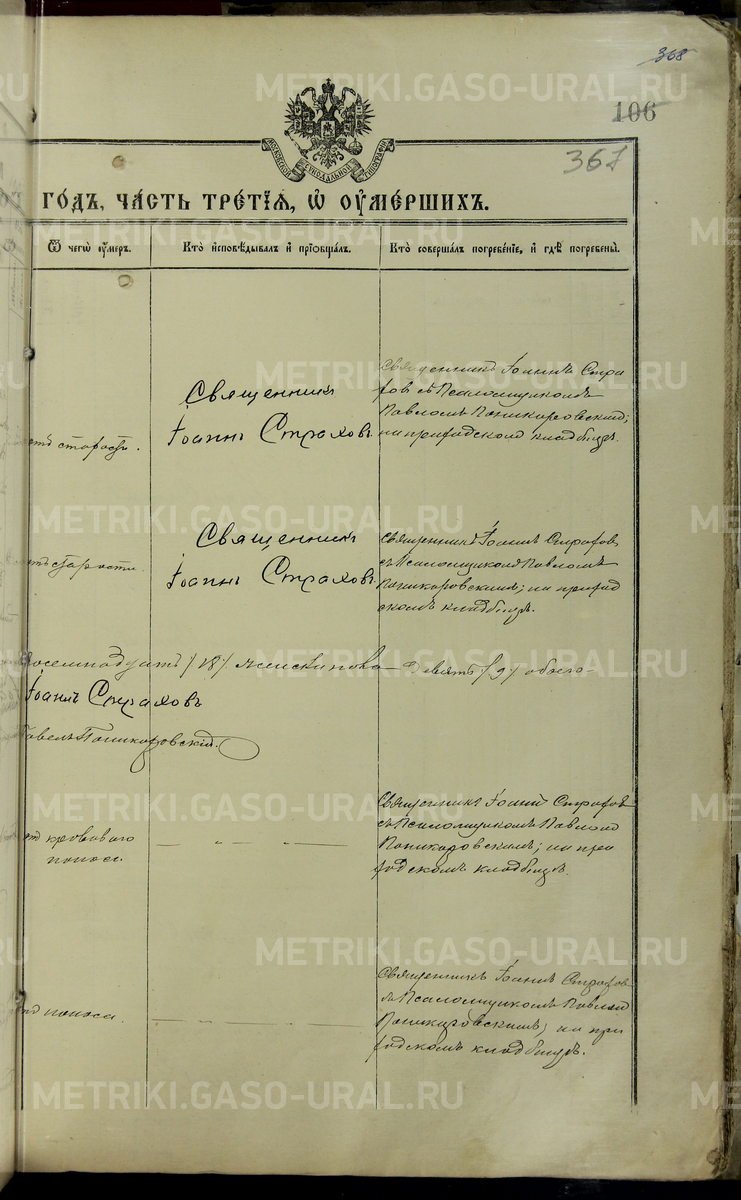 368
106
367
МОСКОВСКОЙ СѴНОДАЛЬНОЙ ТИПОГРАФІИ
ГО́ДЪ, ЧА́СТЬ ТРЕ́ТІѦ, Ѡ҆ ОУ҆МЕ́РШИХЪ.
Ѿ чегѡ̀ оу҆́меръ.
Кто̀ и҆сповѣ́дывалъ и҆ прїѻбща́лъ.
Кто̀ соверша́лъ погребе́нїе, и҆ гдѣ̀ погребены̀.
отъ старости.
Священникъ
Іоаннъ Страховъ.
Священникъ Іоаннъ Стра
ховъ съ Псаломщикомъ
Павломъ Поникоровскимъ;
на приходскомъ кладбищѣ.
отъ старости.
Священникъ
Іоаннъ Страховъ.
Священникъ Іоаннъ Страховъ
съ Псаломщикомъ Павломъ
Поникаровскимъ; на приход
скомъ кладбищѣ.
восемнадцать /18/ женскаго пола – девять /9/ обоего–
Іоаннъ Страховъ
Павелъ Поникаровскій.
отъ кроваваго
поноса.
— „ — „ —
Священникъ Іоаннъ Страховъ
съ Псаломщикомъ Павломъ
Поникаровскимъ; на при
ходскомъ кладбищѣ.
отъ поноса.
Священникъ Іоаннъ Страховъ
съ Псаломщикомъ Павломъ
Поникаровскимъ; на при
ходскомъ кладбищѣ.
METRIKI.GASO-URAL.RU